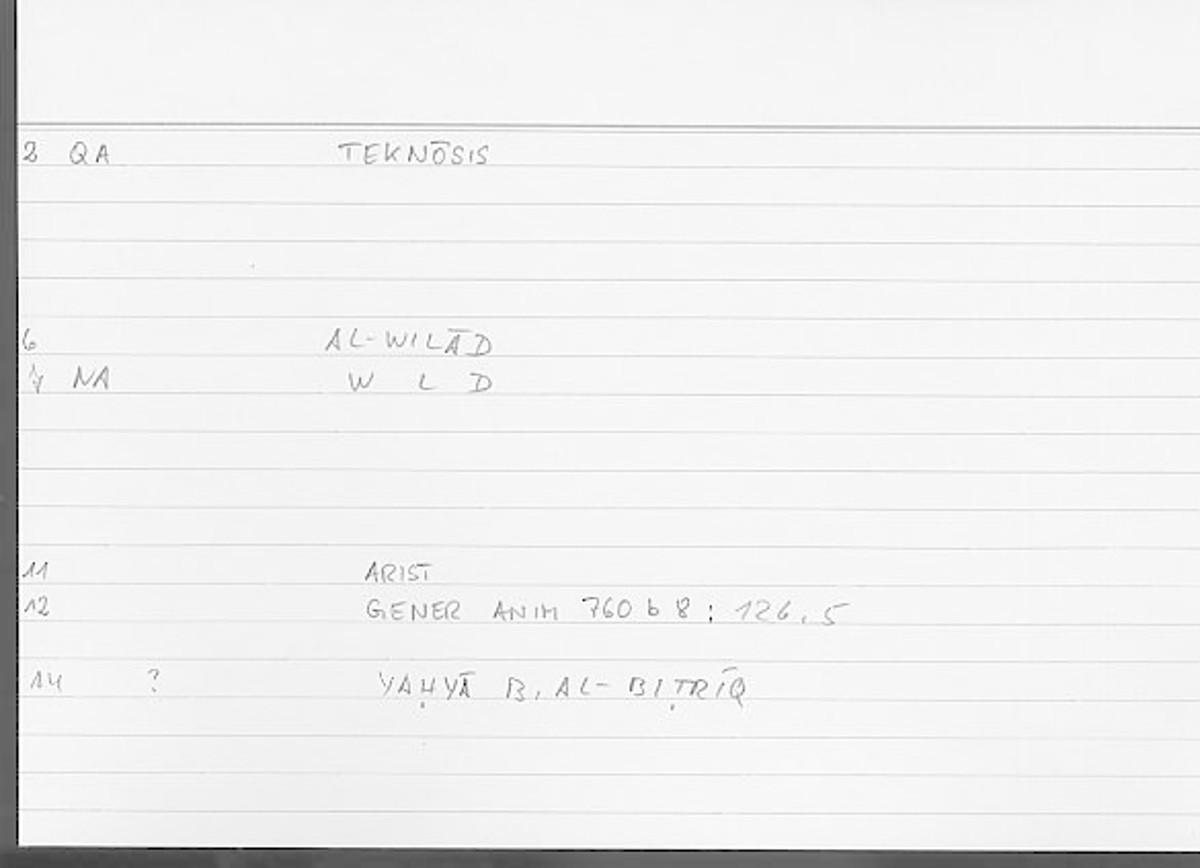 2 QA TEKNŌSIS
6 AL-WILĀD
7 NA W L D
11 ARIST
12 GENER ANIM 760 b 8 : 126, 5
14 ? YAḤYĀ B. AL-BIṬRĪQ